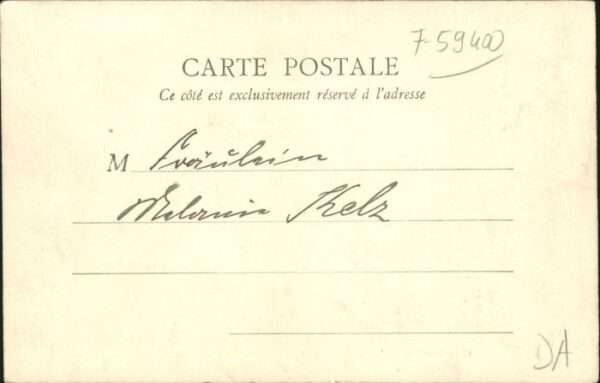 7-59400
CARTE POSTALE
Ce côté est exclusivement réservé à l'adresse
M Fräulein
Melanie Kelz
DA